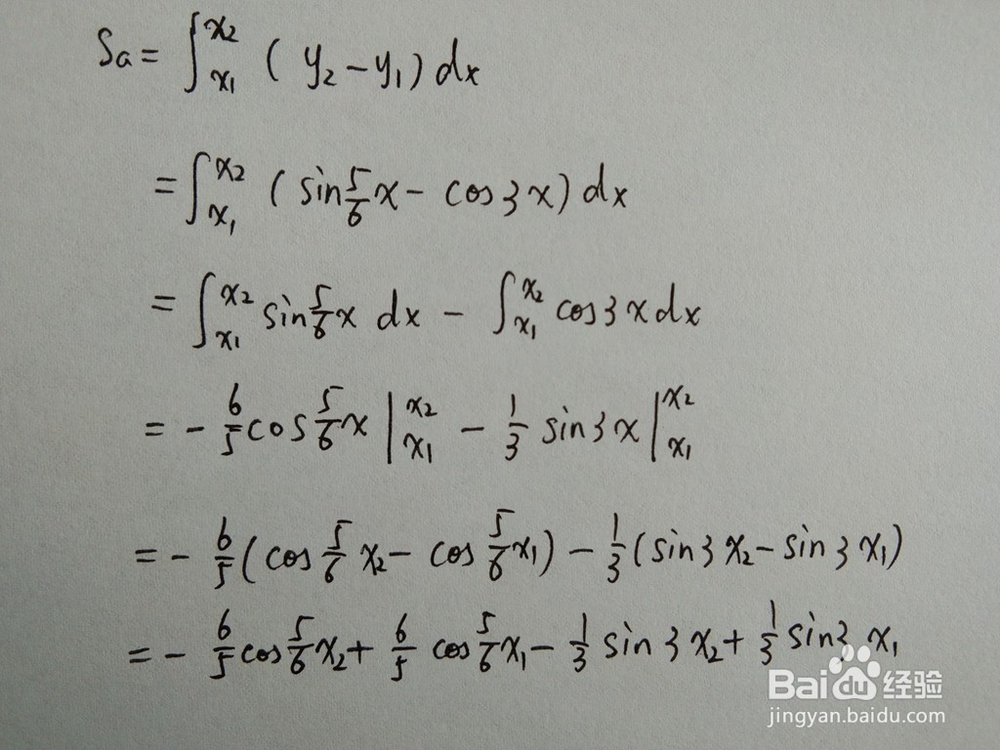 Sa = ∫_{x1}^{x2} (y2 - y1) dx
= ∫_{x1}^{x2} (sin 5/6 x - cos 3x) dx
= ∫_{x1}^{x2} sin 5/6 x dx - ∫_{x1}^{x2} cos 3x dx
= - 6/5 cos 5/6 x |_{x1}^{x2} - 1/3 sin 3x |_{x1}^{x2}
= - 6/5 (cos 5/6 x2 - cos 5/6 x1) - 1/3 (sin 3x2 - sin 3x1)
= - 6/5 cos 5/6 x2 + 6/5 cos 5/6 x1 - 1/3 sin 3x2 + 1/3 sin 3x1
Baidu经验
jingyan.baidu.com